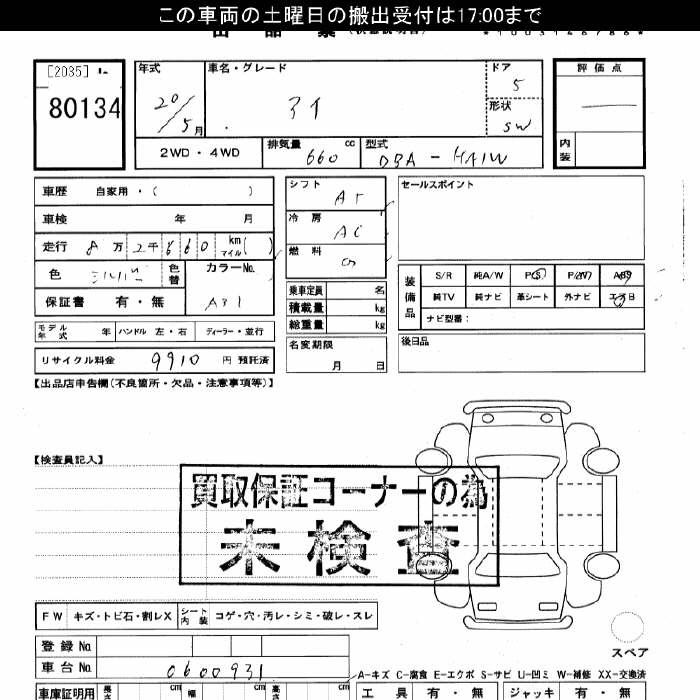 この車両の土曜日の搬出受付は17:00まで
出品票
[2035]
80134
年式 車名・グレード ドア 評価点
20/5月 アイ 5
形状 SW
2WD・4WD 排気量 660 cc 型式 DBA-HA1W 内装
車歴 自家用・( )
車検 年 月
走行 8万2千660 km マイル( )
色 シルバー 色替 カラーNo. A31
保証書 有・無
モデル年式 年 ハンドル 左・右 ディーラー・並行
リサイクル料金 9910 円 預託済
シフト AT
冷房 AC
燃料 G
乗車定員 名
積載量 kg
総重量 kg
名変期限
月 日
セールスポイント
装備品 S/R 純A/W P(S) P/W ABS
純TV 純ナビ 革シート 外ナビ エアB
ナビ型番:
後日品
【出品店申告欄(不良箇所・欠品・注意事項等)】
【検査員記入】
買取保証コーナーの為
未検査
FW キズ・トビ石・割レX シート内装 コゲ・穴・汚レ・シミ・破レ・スレ
スペア
登録No.
車台No. 0600931
A-キズ C-腐食 E-エクボ S-サビ U-凹ミ W-補修 XX-交換済
車庫証明用 長さ cm 幅 cm 高さ cm 工具 有・無 ジャッキ 有・無